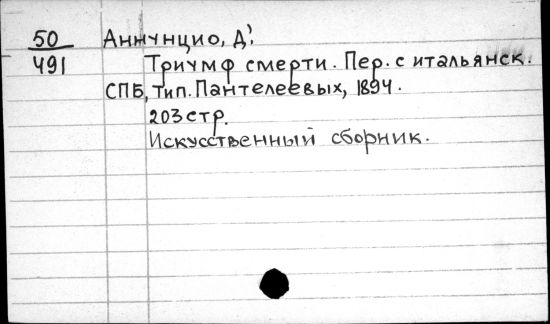 50 Аннунцио, Д'.
491 Триумф смерти. Пер. с итальянск.
СПБ, тип. Пантелеевых, 1894.
203 стр.
Искусственный сборник.